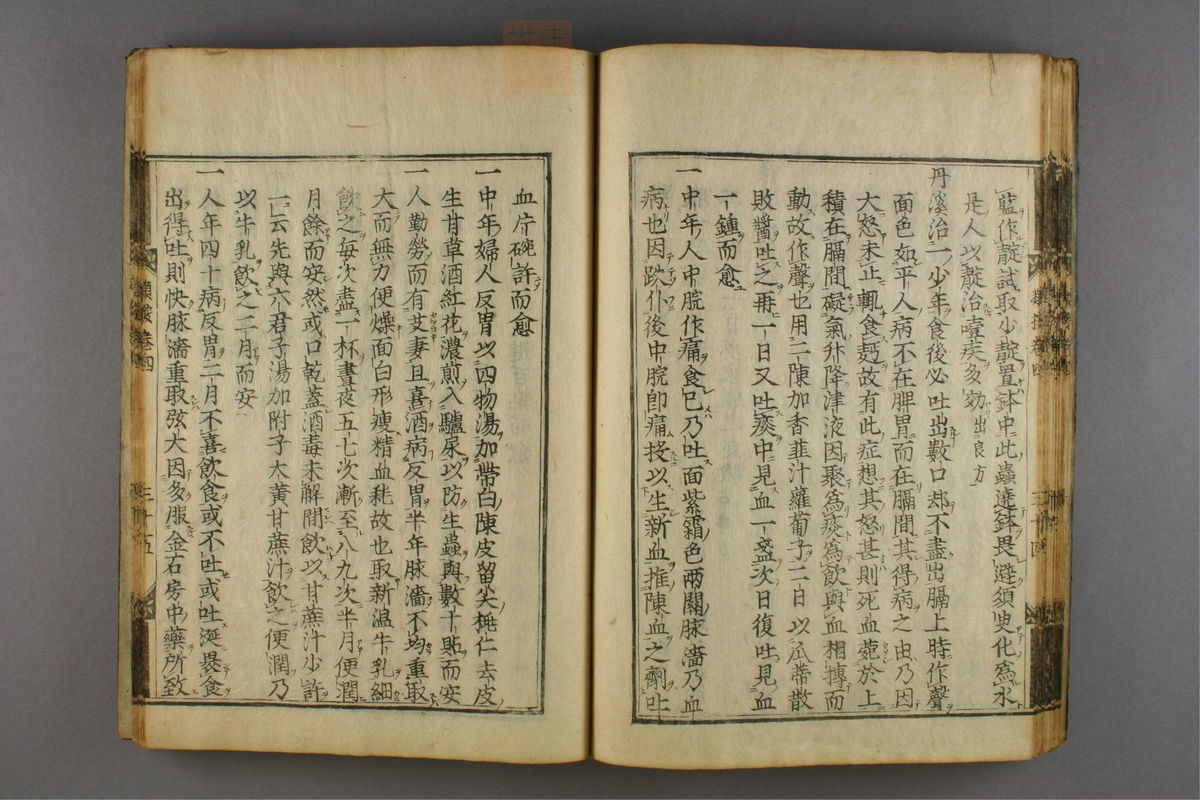 藍作靛試取少靛置鉢中此蟲遶鉢畏避須臾化為水
是人以靛治噎疾多効出良方
丹溪治一少年食後必吐出數口却不盡出膈上時作聲
面色如平人病不在脾胃而在膈間其得病之由乃因
大怒未止輒食麪故有此症想其怒甚則死血菀於上
積在膈間礙氣升降津液因聚為痰為飲與血相搏而
動故作聲也用二陳加香韭汁蘿蔔子二日以瓜蒂散
敗醬吐之再一日又吐痰中見血一盞次日復吐見血
一鍾而愈
一中年人中脘作痛食已乃吐面紫霜色兩關脉濇乃血
病也因跌仆後中脘即痛投以生新血推陳血之劑吐
血片碗許而愈
一中年婦人反胃以四物湯加帶白陳皮留尖桃仁去皮
生甘草酒紅花濃煎入驢尿以防生蟲與數十貼而安
一人勤勞而有艾妻且喜酒病反胃半年脉濇不均重取
大而無力便燥面白形瘦精血耗故也取新温牛乳細
飲之每次盡一杯晝夜五七次漸至八九次半月便潤
月餘而安然或口乾蓋酒毒未解間飲以甘蔗汁少許
一云先與六君子湯加附子大黄甘蔗汁飲之便潤乃
以牛乳飲之二月而安
一人年四十病反胃二月不喜飲食或不吐或吐涎裹食
出得吐則快脉濇重取弦大因多服金石房中藥所致
類按卷四
三十五